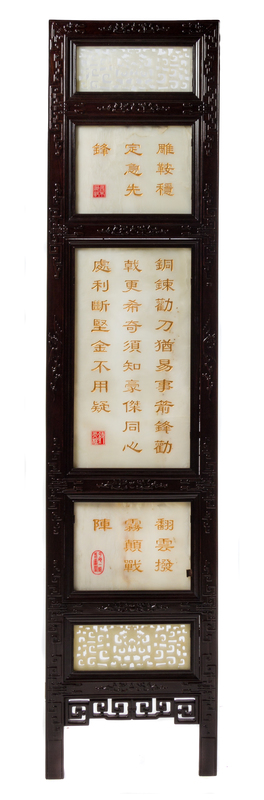 雕鞍穩
定急先
鋒
銅鍊勸刀猶易事箭鋒勸
戟更希奇須知豪傑同心
處利斷堅金不用疑
翻雲撥
霧顛戰
陣